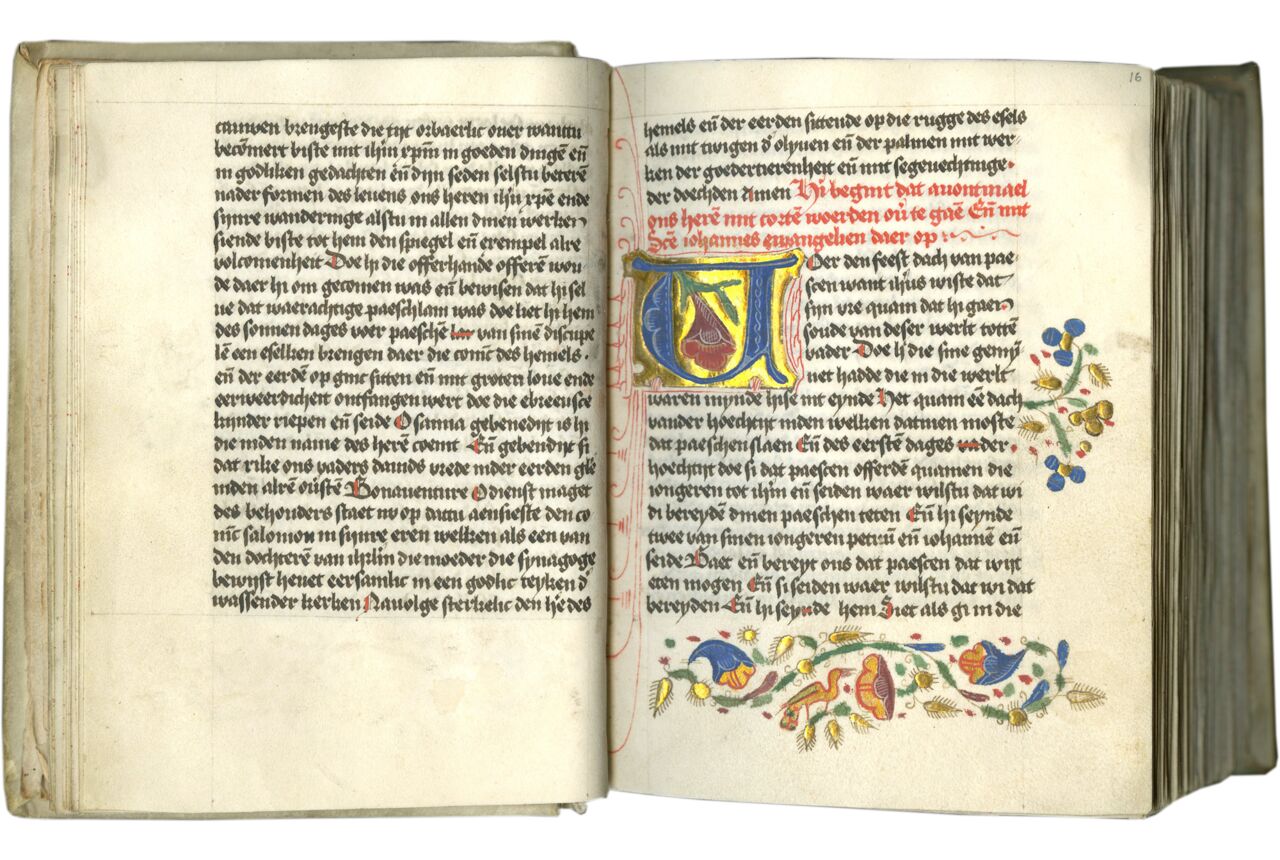 cauwen brengeste die tijt orbaerlic ouer wantu
becōmert biste mit ihm xpm̄ in goeden dingē eñ
in godliken gedachten eñ dijn seden selstu beterē
nader formen des leuens ons heren ihū xpē ende
sijnre wanderinge alstu in allen dinen werken
siende biste tot hem den spiegel eñ exempel alre
volcomenheit Doe hi die offerhande offerē wou-
de daer hi om gecomen was eñ bewisen dat hi sel
ue dat waerachtige paeschlam was doe liet hi hem
des sonnen dages voer paeschē van sinē discipe
lē een eselken brengen daer die conīc des hemels
eñ der eerdē op ginc sitten eñ mit groten loue ende
eerweerdicheit ontfangen wert doe die ebreeusce
kijnder riepen eñ seide Osanna gebenedijt is hi
die inden name des herē coemt Eñ gebendijt si
dat rike ons vaders dauids vrede inder eerden glē
inden alrē ouste Bonauenture O dienst maget
des behouders staet nv op dattu aensieste den co
nīc salomon in sijnre eren welken als een van
den dochterē van ihrlm̄ die moeder die synagoge
bewijst heuet eersamlic in een godlic teyken d'
wassender kerken Nauolge sterkelic den hē des
16
hemels eñ der eerden sittende op die rugge des esels
als mit twigen d' olyuen eñ der palmen mit wer-
ken der goedertierenheit eñ mit segeuechtinge
der doechden amen Hi begint dat auontmael
ons herē mit cortē woerden ou' te gaē Eñ mit
Scē iohannes ewangelien daer op
Uoer den feest dach van pae-
scen want ihūs wiste dat
sijn vre quam dat hi gaen
soude van deser werlt tottē
vader Doe hi die sine gemȳ
net hadde die in die werlt
waren mynde hise int eynde Het quam eē dach
vander hoechtijt inden welken datmen moste
dat paeschen slaen Eñ des eerstē dages der
hoechtijt doe si dat paescen offerdē quamen die
iongeren tot ihm̄ eñ seiden waer wilstu dat wi
di bereyden dinen paeschen teten Eñ hi seynde
twee van sinen iongeren petrū eñ iohannē eñ
seide Gaet eñ bereyt ons dat paescen dat wijt
eten mogen Eñ si seiden waer wilstu dat wi dat
bereyden Eñ hi seynde hem Siet als gi in die